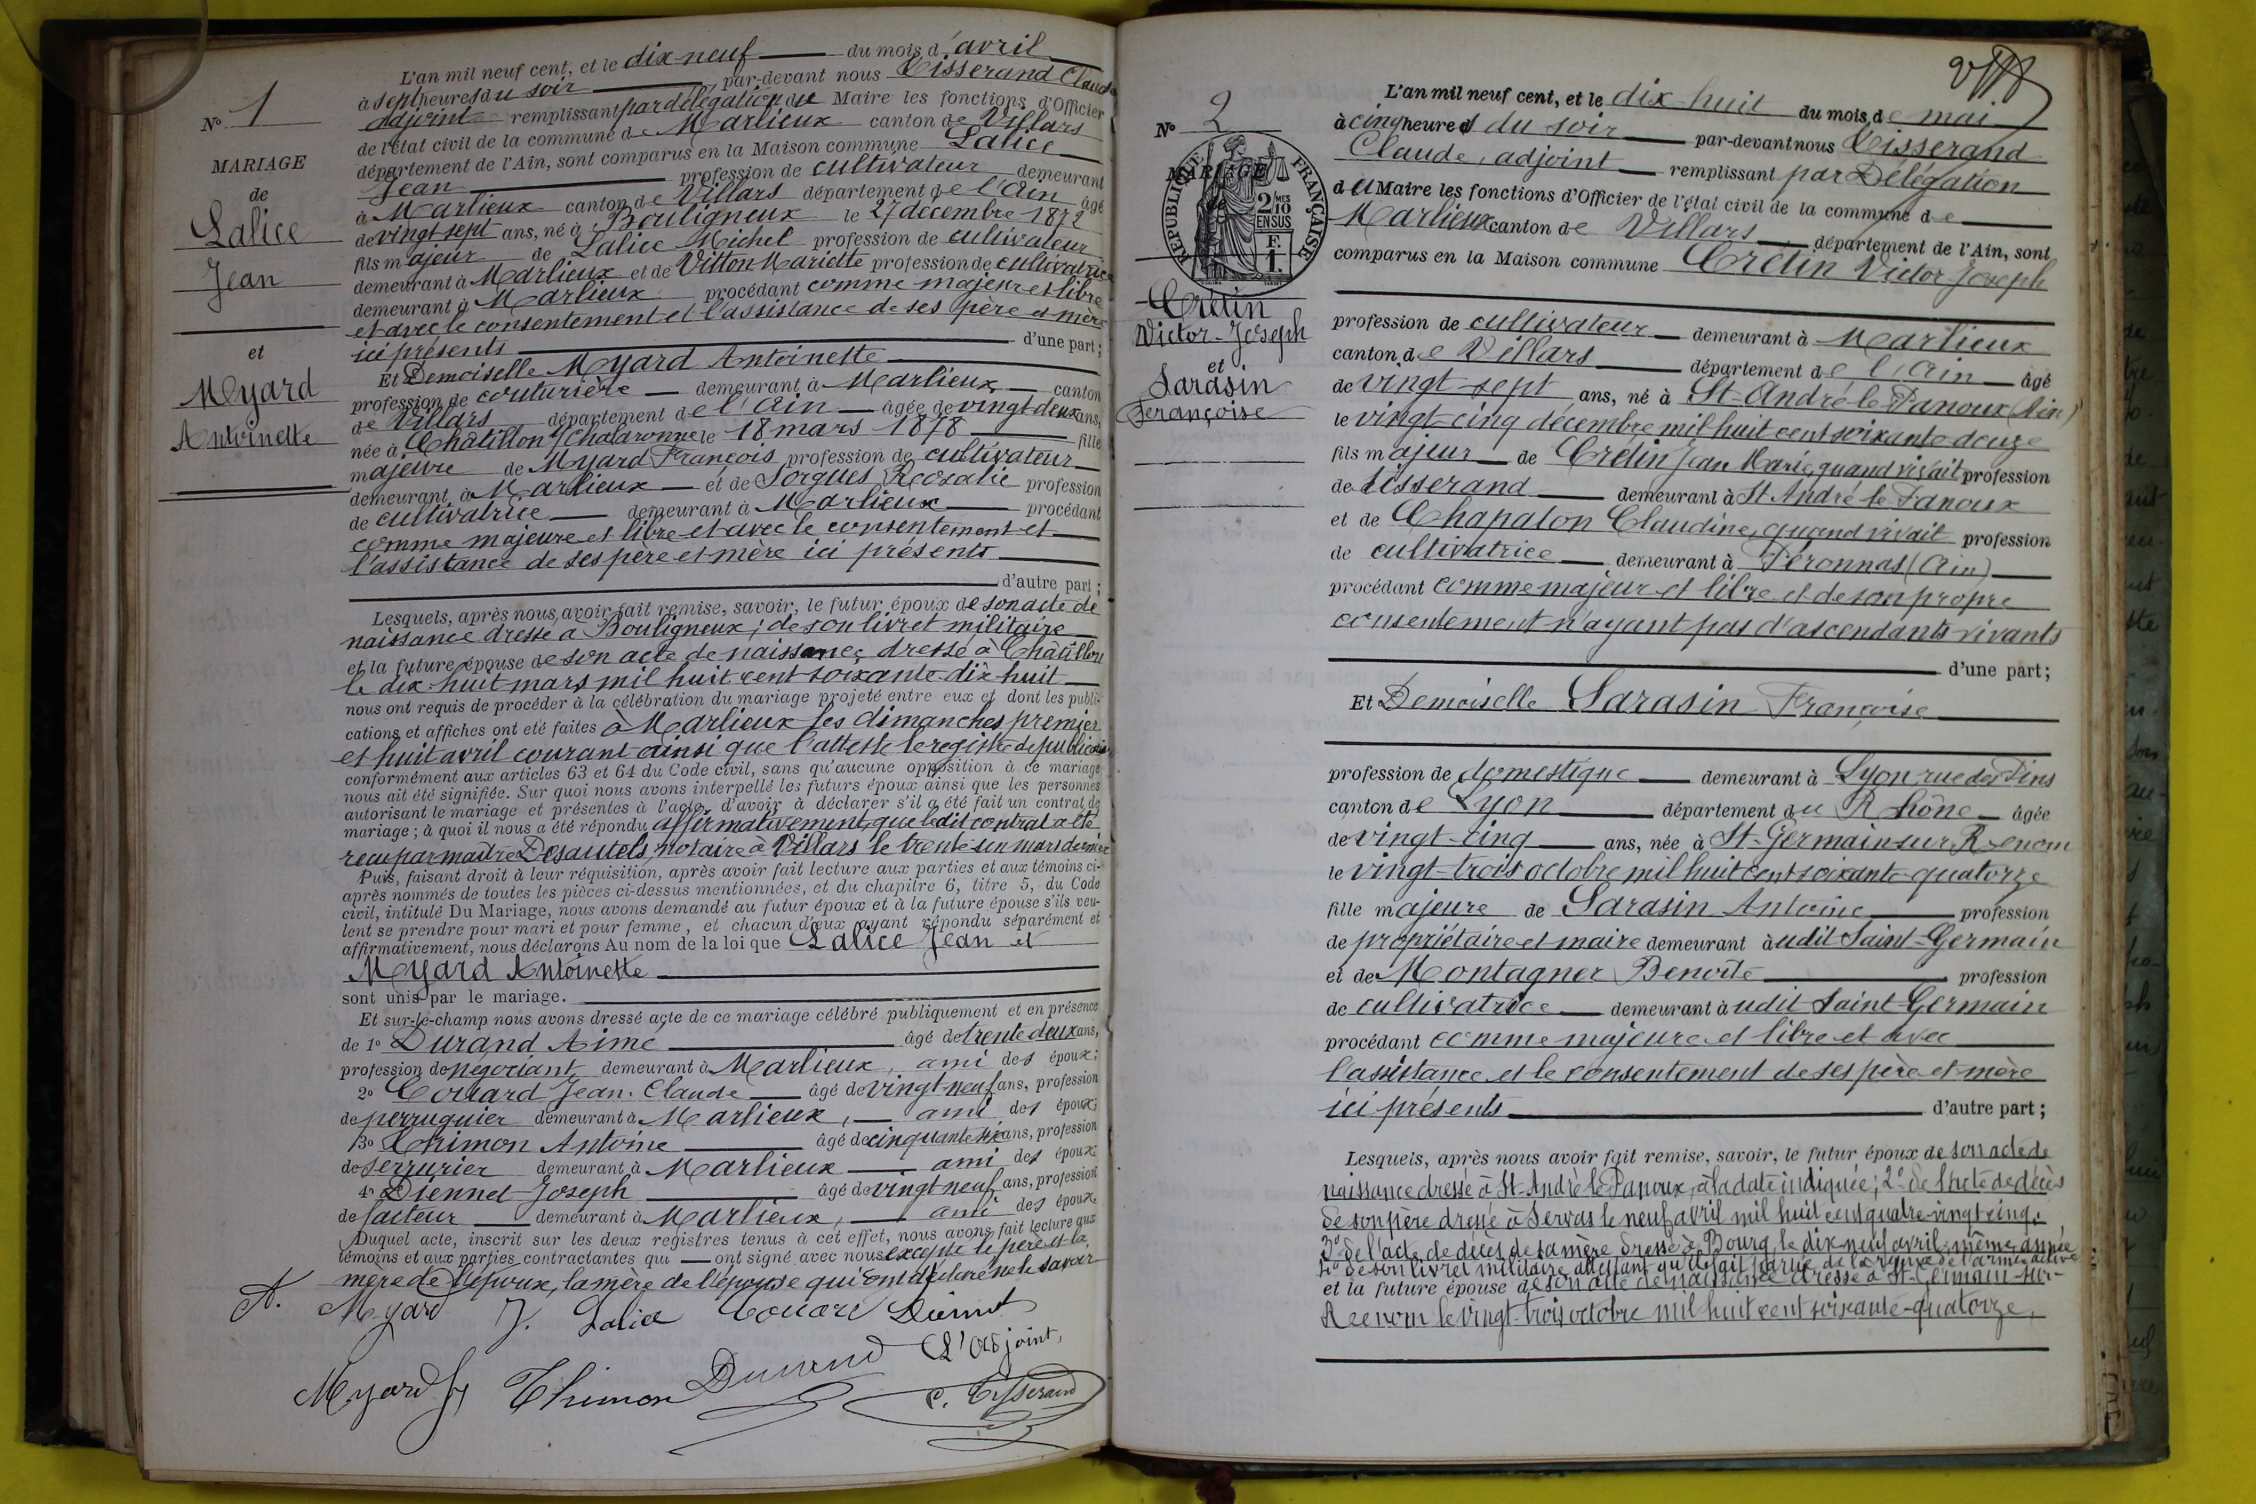 L'an mil neuf cent, et le dix-neuf du mois d'avril
à sept heures du soir par-devant nous Tisserand Claude
adjoint remplissant par délégation du Maire les fonctions d'Officier
de l'état civil de la commune de Marlieux canton de Villars
département de l'Ain, sont comparus en la Maison commune Lalice
Jean profession de cultivateur demeurant
à Marlieux canton de Villars département de l'Ain âgé
de vingt-sept ans, né à Bouligneux le 27 décembre 1872
fils majeur de Lalice Michel profession de cultivateur
demeurant à Marlieux et de Vitton Mariette profession de cultivatrice
demeurant à Marlieux procédant comme majeur et libre
et avec le consentement et l'assistance de ses père et mère
ici présents d'une part;
Et Demoiselle Myard Antoinette
profession de couturière demeurant à Marlieux canton
de Villars département de l'Ain âgée de vingt-deux ans,
née à Châtillon s/Chalaronne le 18 mars 1878 fille
majeure de Myard François profession de cultivateur
demeurant à Marlieux et de Sorgues Rosalie profession
de cultivatrice demeurant à Marlieux procédant
comme majeure et libre et avec le consentement et
l'assistance de ses père et mère ici présents
d'autre part;
Lesquels, après nous avoir fait remise, savoir, le futur époux de son acte de
naissance dressé à Bouligneux; de son livret militaire
et la future épouse de son acte de naissance dressé à Châtillon
le dix-huit mars mil huit cent soixante-dix-huit
nous ont requis de procéder à la célébration du mariage projeté entre eux et dont les publi-
cations et affiches ont été faites à Marlieux les dimanches premier
et huit avril courant ainsi que l'atteste le registre de publications
conformément aux articles 63 et 64 du Code civil, sans qu'aucune opposition à ce mariage
nous ait été signifiée. Sur quoi nous avons interpellé les futurs époux ainsi que les personnes
autorisant le mariage et présentes à l'acte, d'avoir à déclarer s'il a été fait un contrat de
mariage; à quoi il nous a été répondu affirmativement, que ledit contrat a été
reçu par maître Desautels, notaire à Villars le trente-un mars dernier
Puis, faisant droit à leur réquisition, après avoir fait lecture aux parties et aux témoins ci-
après nommés de toutes les pièces ci-dessus mentionnées, et du chapitre 6, titre 5, du Code
civil, intitulé Du Mariage, nous avons demandé au futur époux et à la future épouse s'ils veu-
lent se prendre pour mari et pour femme, et chacun d'eux ayant répondu séparément et
affirmativement, nous déclarons Au nom de la loi que Lalice Jean et
Myard Antoinette
sont unis par le mariage.
Et sur-le-champ nous avons dressé acte de ce mariage célébré publiquement et en présence
de 1º Durand Aimé âgé de trente-deux ans,
profession de négociant demeurant à Marlieux, ami des époux;
2º Couard Jean-Claude âgé de vingt-neuf ans, profession
de perruquier demeurant à Marlieux, ami des époux;
3º Thimon Antoine âgé de cinquante-six ans, profession
de serrurier demeurant à Marlieux ami des époux;
4º Diennet Joseph âgé de vingt-neuf ans, profession
de facteur demeurant à Marlieux, ami des époux.
Duquel acte, inscrit sur les deux registres tenus à cet effet, nous avons fait lecture aux
témoins et aux parties contractantes qui ont signé avec nous excepté le père et la
mère de l'époux, la mère de l'épouse qui ont déclaré ne le savoir
A. Myard J. Lalice Couard Diennet
L'adjoint,
Myard Thimon Durand C. Tisserand
Nº 1
MARIAGE
de
Lalice
Jean
et
Myard
Antoinette
Nº 2
MARIAGE
REPUBLIQUE FRANÇAISE
2 MES
10
EN SUS
F.
1.
Crétin
Victor-Joseph
et
Sarasin
Françoise
L'an mil neuf cent, et le dix-huit du mois de mai
à cinq heures du soir par-devant nous Tisserand
Claude, adjoint remplissant par Délégation
du Maire les fonctions d'Officier de l'état civil de la commune de
Marlieux canton de Villars département de l'Ain, sont
comparus en la Maison commune Crétin Victor Joseph
profession de cultivateur demeurant à Marlieux
canton de Villars département de l'Ain âgé
de vingt-sept ans, né à St-André-le-Panoux (Ain)
le vingt-cinq décembre mil huit cent soixante-douze
fils majeur de Crétin Jean Marie, quand vivait profession
de tisserand demeurant à St André-le-Panoux
et de Chapalon Claudine, quand vivait profession
de cultivatrice demeurant à Péronnas (Ain)
procédant comme majeur et libre et de son propre
consentement n'ayant pas d'ascendants vivants
d'une part;
Et Demoiselle Sarasin Françoise
profession de domestique demeurant à Lyon rue des Pins
canton de Lyon département du Rhône âgée
de vingt-cinq ans, née à St-Germain-sur-Renom
le vingt-trois octobre mil huit cent soixante-quatorze
fille majeure de Sarasin Antoine profession
de propriétaire et maire demeurant audit Saint-Germain
et de Montagner Benoîte profession
de cultivatrice demeurant audit Saint-Germain
procédant comme majeure et libre et avec
l'assistance et le consentement de ses père et mère
ici présents d'autre part;
Lesquels, après nous avoir fait remise, savoir, le futur époux de son acte de
naissance dressé à St-André-le-Panoux, à la date indiquée; 2º de l'acte de décès
de son père dressé à Servas le neuf avril mil huit cent quatre-vingt-cinq;
3º de l'acte de décès de sa mère dressé à Bourg, le dix-neuf avril, même année
4º de son livret militaire attestant qu'il fait partie de la réserve de l'armée active
et la future épouse de son acte de naissance dressé à St-Germain-sur-
Renom le vingt-trois octobre mil huit cent soixante-quatorze,